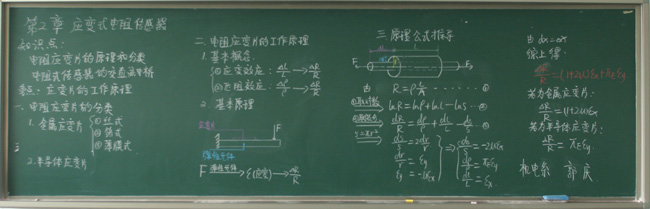 第2章 应变式电阻传感器
知识点:
电阻应变片的原理和分类
电阻式传感器的交直流电桥
重点: 应变片的工作原理
一 电阻应变片的分类
1. 金属应变片
① 丝式
② 箔式
③ 薄膜式
2. 半导体应变片
二 电阻应变片的工作原理
1. 基本概念
① 应变效应: ΔL/L → ΔR/R
② 压阻效应: Δρ/ρ → ΔR/R
2. 基本原理
应变片
F
弹性元件
F 弹性元件→ ε(应变) → ΔR/R
三 原理公式推导
F
F
由 R = ρ L/A ①
lnR = lnρ + lnL - lnS ②
dR/R = dρ/ρ + dL/L - dS/S ③
dS/S = 2 dr/r
dr/r = εy
εy = -μεx
由 dx=
综上得:
ΔR/R = (1+2μ)εx + πEεx
若为金属应变片:
ΔR/R = (1+2μ)εx
若为半导体应变片:
ΔR/R = πEεx
机电系